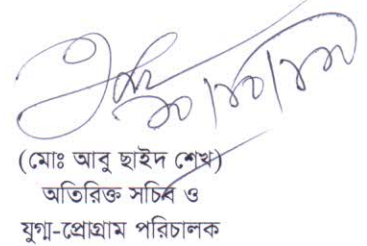 (মোঃ আবু ছাইদ শেখ)
অতিরিক্ত সচিব ও
যুগ্ম-প্রোগ্রাম পরিচালক